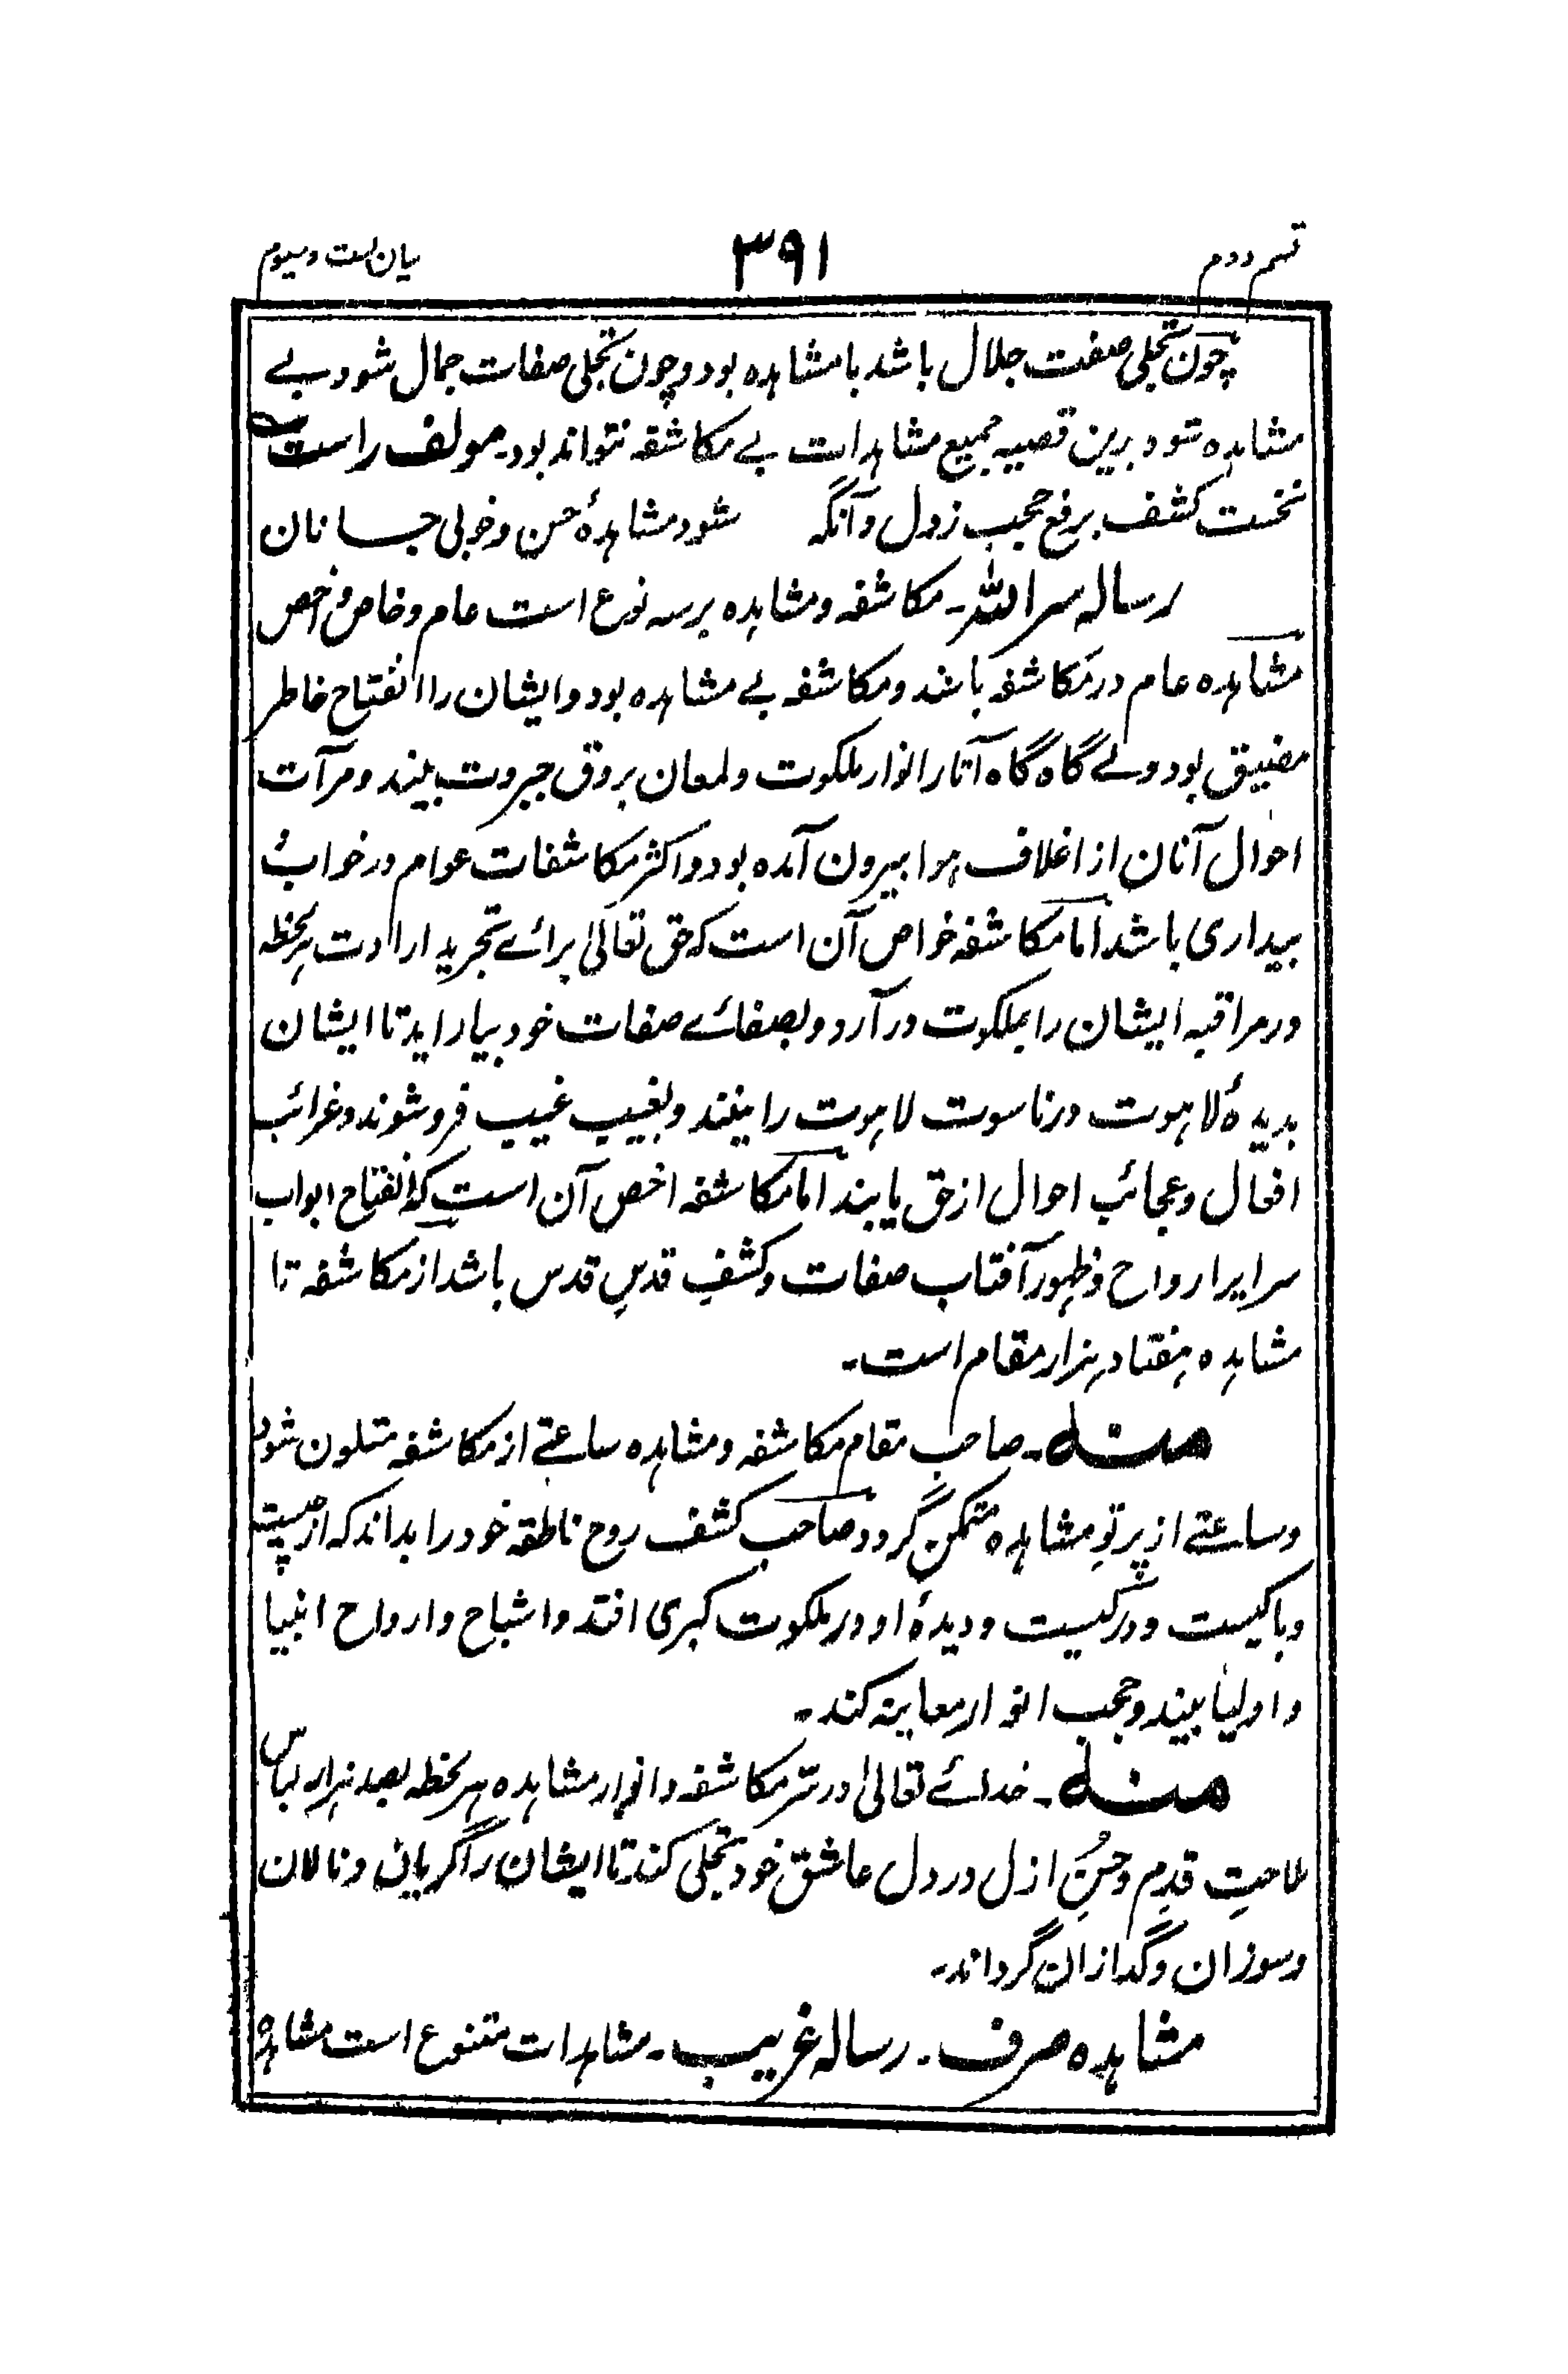 قسم دوم ۳۹۱ بیان بست و سیوم
چون تجلی صفت جلال باشد بامشاہدہ بود وچون تجلی صفات جمال شود بے
مشاہدہ شود برین قضیہ جمیع مشاہدات بے مکاشفہ نتواند بود۔ مولف راست
نخست کشف برفع حجب زدل وآنگہ شود مشاہدۂ حسن وخوبی جانان
رسالہ سر اللہ۔ مکاشفہ ومشاہدہ برسہ نوع است عام وخاص واخص
مشاہدہ عام در مکاشفہ باشد ومکاشفہ بے مشاہدہ بود وایشان را انفتاح خاطر
مضیق بود ولے گاہ گاہ آثار انوار ملکوت ولمعان بروق جبروت بینند ومرآت
احوال آنان از اغلاف ہوا بیرون آمدہ بود واکثر مکاشفات عوام در خواب و
بیداری باشد اما مکاشفہ خواص آن است کہ حق تعالیٰ برائے تجرید ارادت ہر لحظہ
در مراقبہ ایشان را بملکوت در آرد وبصفائے صفات خود بیاراید تا ایشان
بدیدۂ لاہوت در ناسوت لاہوت را بینند وبغیب غیب فرو شوند وغرائب
افعال وعجائب احوال از حق یابند اما مکاشفہ اخص آن است کہ انفتاح ابواب
سرایر ارواح وظہور آفتاب صفات وکشفِ قدسِ قدس باشد از مکاشفہ تا
مشاہدہ ہفتاد ہزار مقام است۔
منہ۔ صاحب مقام مکاشفہ ومشاہدہ ساعتے از مکاشفہ متلون شود
وساعتے از پرتوِ مشاہدہ متمکن گردد صاحب کشف روح ناطقہ خود را بداند کہ از چیست
وباکیست ودرکیست ودیدۂ او در ملکوت کبری افتد واشباح وارواح انبیا
واولیا بیند وحجب انوار معاینہ کند۔
منہ۔ خدائے تعالیٰ در سر مکاشفہ وانوار مشاہدہ ہر لحظہ بصد ہزار لباس
ملاحتِ قدم وحسنِ ازل در دل عاشق خود تجلی کند تا ایشان را گریان ونالان
وسوزان وگدازان گرداند۔
مشاہدہ صرف۔ رسالہ غریب۔ مشاہدات متنوع است مشاہدہ